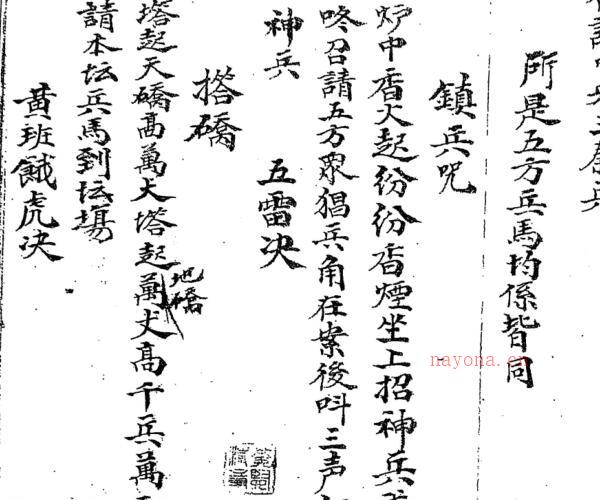 所是五方兵馬均係皆同
鎮兵咒
炉中香火起纷纷香煙坐上招神兵
咚召請五方衆猖兵角在案後呌三声
神兵
五雷决
搭礄
塔起天礄高萬丈塔起萬丈高千兵萬
地礄
請本坛兵馬到坛場
黄班餓虎决
nayona.cn